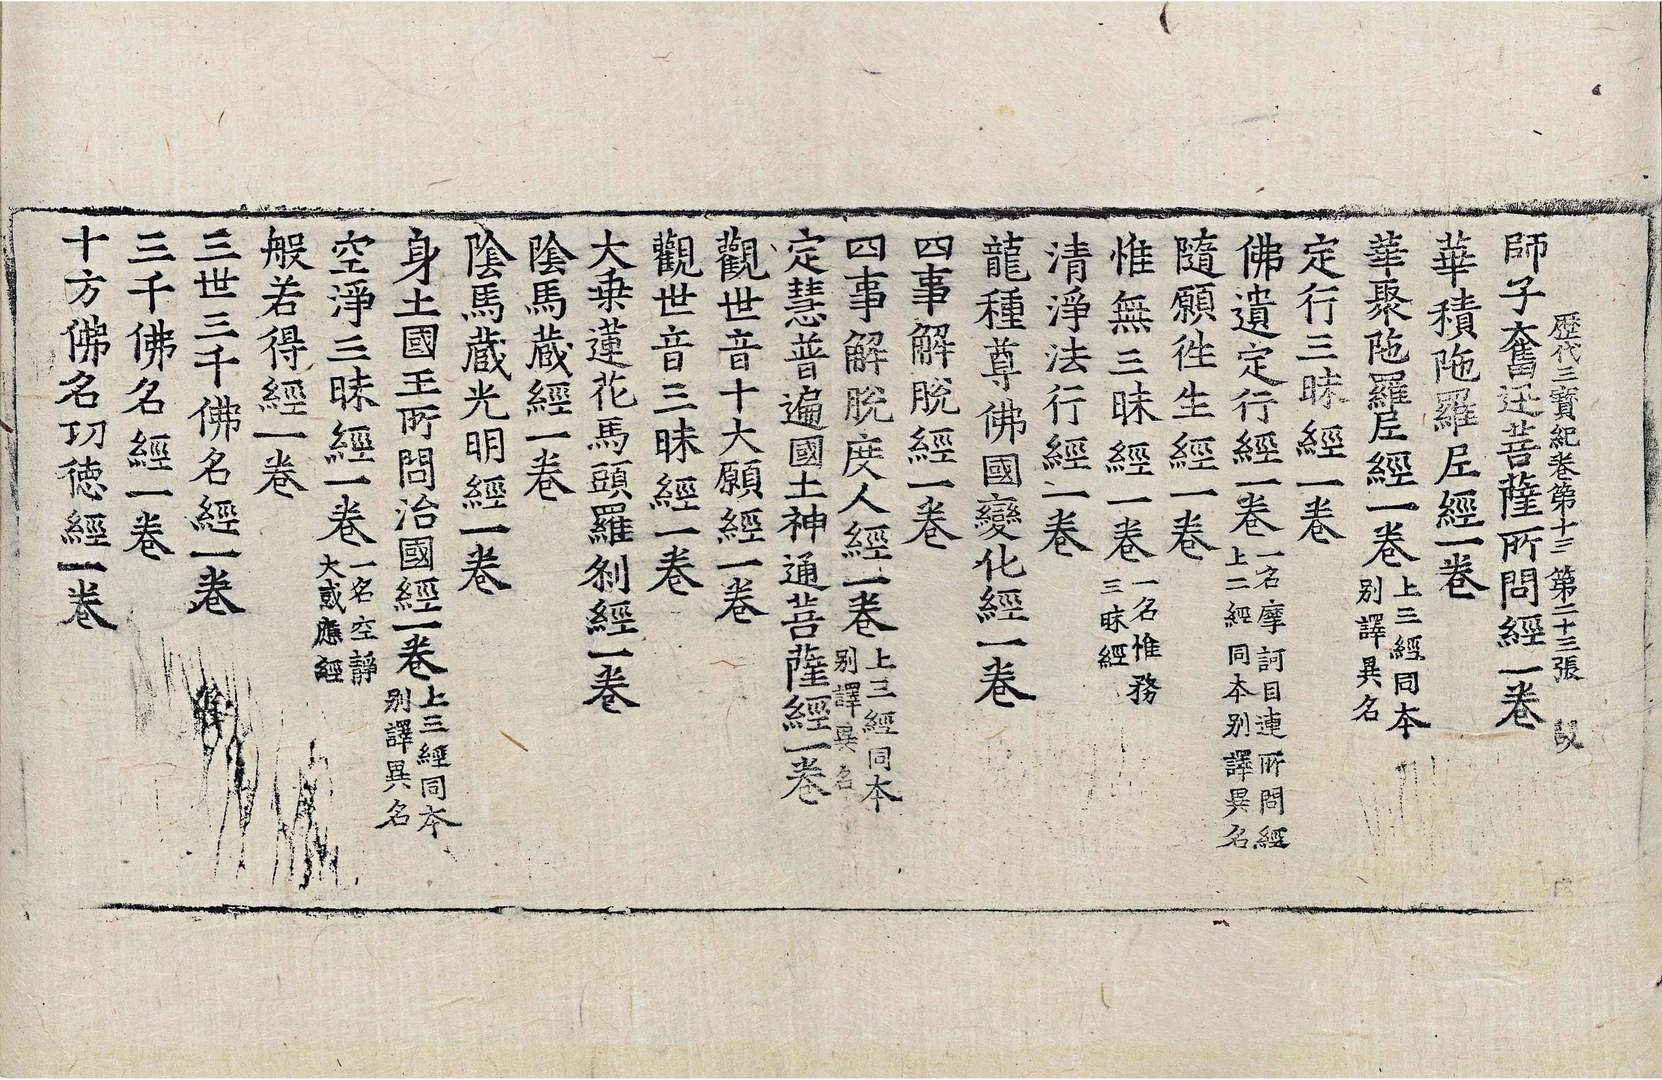 歷代三寶紀卷第十三 第二十三張
師子奮迅菩薩所問經一卷
華積陁羅尼經一卷
華聚陁羅尼經一卷 上三經同本別譯異名
定行三昧經一卷
佛遺定行經一卷 一名摩訶目連所問經上二經同本別譯異名
隨願徃生經一卷
惟無三昧經一卷 一名惟務三昧經
清淨法行經一卷
龍種尊佛國變化經一卷
四事解脫經一卷
四事解脫度人經一卷 上三經同本別譯異名
定慧普遍國土神通菩薩經一卷
觀世音十大願經一卷
觀世音三昧經一卷
大乗蓮花馬頭羅剎經一卷
陰馬藏經一卷
陰馬藏光明經一卷
身土國王所問治國經一卷 上三經同本別譯異名
空淨三昧經一卷 一名空靜大感應經
般若得經一卷
三世三千佛名經一卷
三千佛名經一卷
十方佛名功徳經一卷